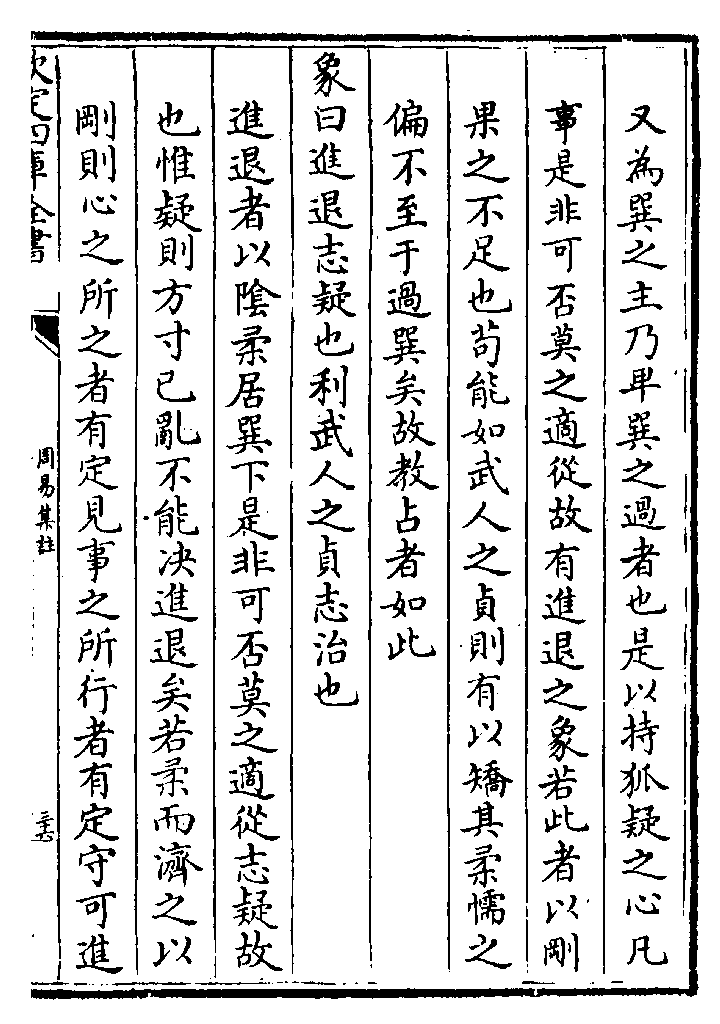 又為巽之主乃卑巽之過者也是以持狐疑之心凡
事是非可否莫之適從故有進退之象若此者以剛
果之不足也苟能如武人之貞則有以矯其柔懦之
偏不至于過巽矣故教占者如此
象曰進退志疑也利武人之貞志治也
進退者以陰柔居巽下是非可否莫之適從志疑故
也惟疑則方寸已亂不能決進退矣若柔而濟之以
剛則心之所之者有定見事之所行者有定守可進
欽定四庫全書
周易集註
三十六